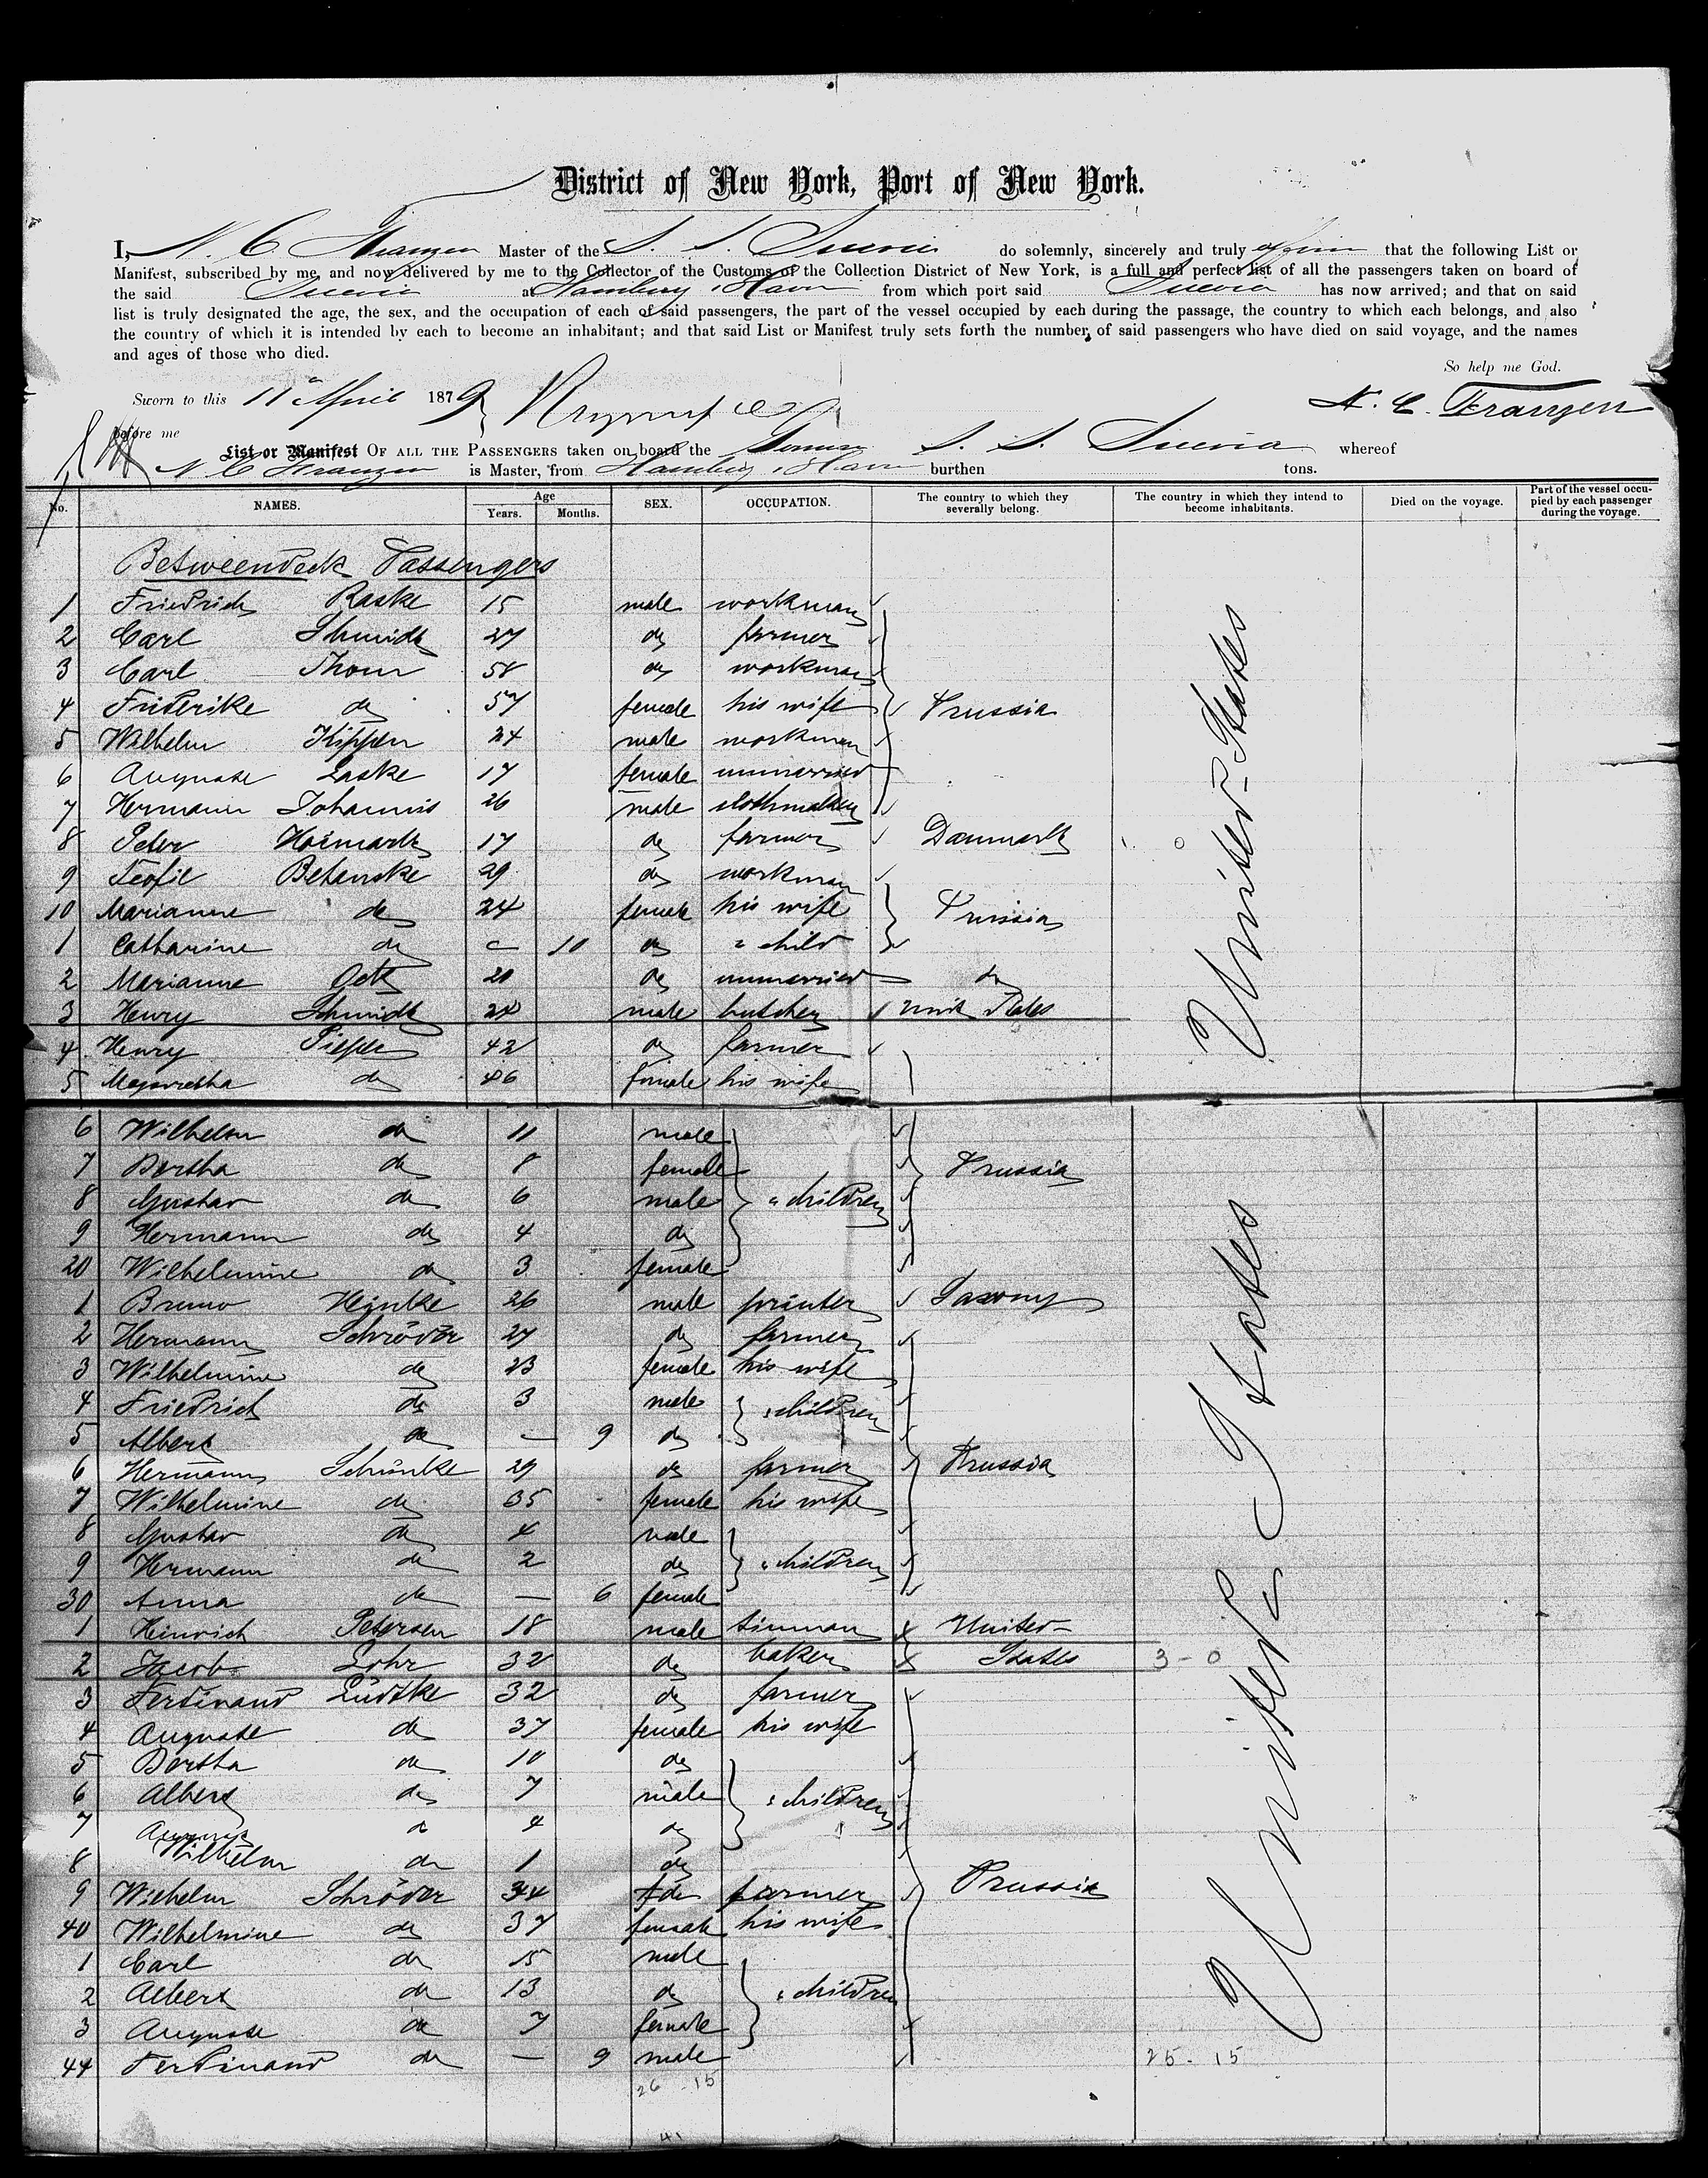 District of New York, Port of New York.
I, N. C. Franzen Master of the S. S. Suevia do solemnly, sincerely and truly affirm that the following List or
Manifest, subscribed by me, and now delivered by me to the Collector of the Customs of the Collection District of New York, is a full and perfect list of all the passengers taken on board of
the said Suevia at Hamburg, Havre from which port said Suevia has now arrived; and that on said
list is truly designated the age, the sex, and the occupation of each of said passengers, the part of the vessel occupied by each during the passage, the country to which each belongs, and also
the country of which it is intended by each to become an inhabitant; and that said List or Manifest truly sets forth the number of said passengers who have died on said voyage, and the names
and ages of those who died.
So help me God.
Sworn to this 11 April 1879 N. C. Franzen
before me
List or Manifest OF ALL THE PASSENGERS taken on board the German S. S. Suevia whereof
N C Franzen is Master, from Hamburg, Havre burthen tons.
No. NAMES. Age Years. Months. SEX. OCCUPATION. The country to which they severally belong. The country in which they intend to become inhabitants. Died on the voyage. Part of the vessel occupied by each passenger during the voyage.
Betweendeck Passengers
1 Friedrich Raske 15 male workman
2 Carl Schmidt 27 do farmer
3 Carl Thom 58 do workman
4 Friderike do 57 female his wife Prussia
5 Wilhelm Kippen 24 male workman
6 Auguste Laske 17 female unmarried
7 Hermann Johannis 26 male clothmaker
8 Peter Hoimark 17 do farmer Danmark
9 Teofil Betanske 29 do workman
10 Marianne do 24 female his wife Prussia
1 Catharine do - 10 do " child
2 Marianne Oett 20 do unmarried do
3 Henry Schmidt 28 male butcher Unit States
4 Henry Pieper 42 do farmer
5 Margaretha do 46 female his wife
United-States
6 Wilhelm do 11 male
7 Bertha do 8 female Prussia
8 Gustav do 6 male " children
9 Hermann do 4 do
20 Wilhelmine do 3 female
1 Bruno Heinke 26 male printer Saxony
2 Hermann Schröder 27 do farmer
3 Wilhelmine do 23 female his wife
4 Friedrich do 3 male " children
5 Albert do - 9 do
6 Hermann Schünke 29 do farmer Prussia
7 Wilhelmine do 35 female his wife
8 Gustav do 4 male
9 Hermann do 2 do " children
30 Anna do - 6 female
1 Heinrich Petersen 18 male tinman United-
2 Jacob Lohr 32 do baker States 3-0
3 Ferdinand Lüdtke 32 do farmer
4 Auguste do 37 female his wife
5 Bertha do 10 do
6 Albert do 7 male " children
7 August do 4 do
8 Wilhelm do 1 do
9 Wilhelm Schröder 34 do farmer Prussia
40 Wilhelmine do 37 female his wife
1 Carl do 15 male
2 Albert do 13 do " children
3 Auguste do 7 female
44 Ferdinand do - 9 male 25-15
United States
26-15
41